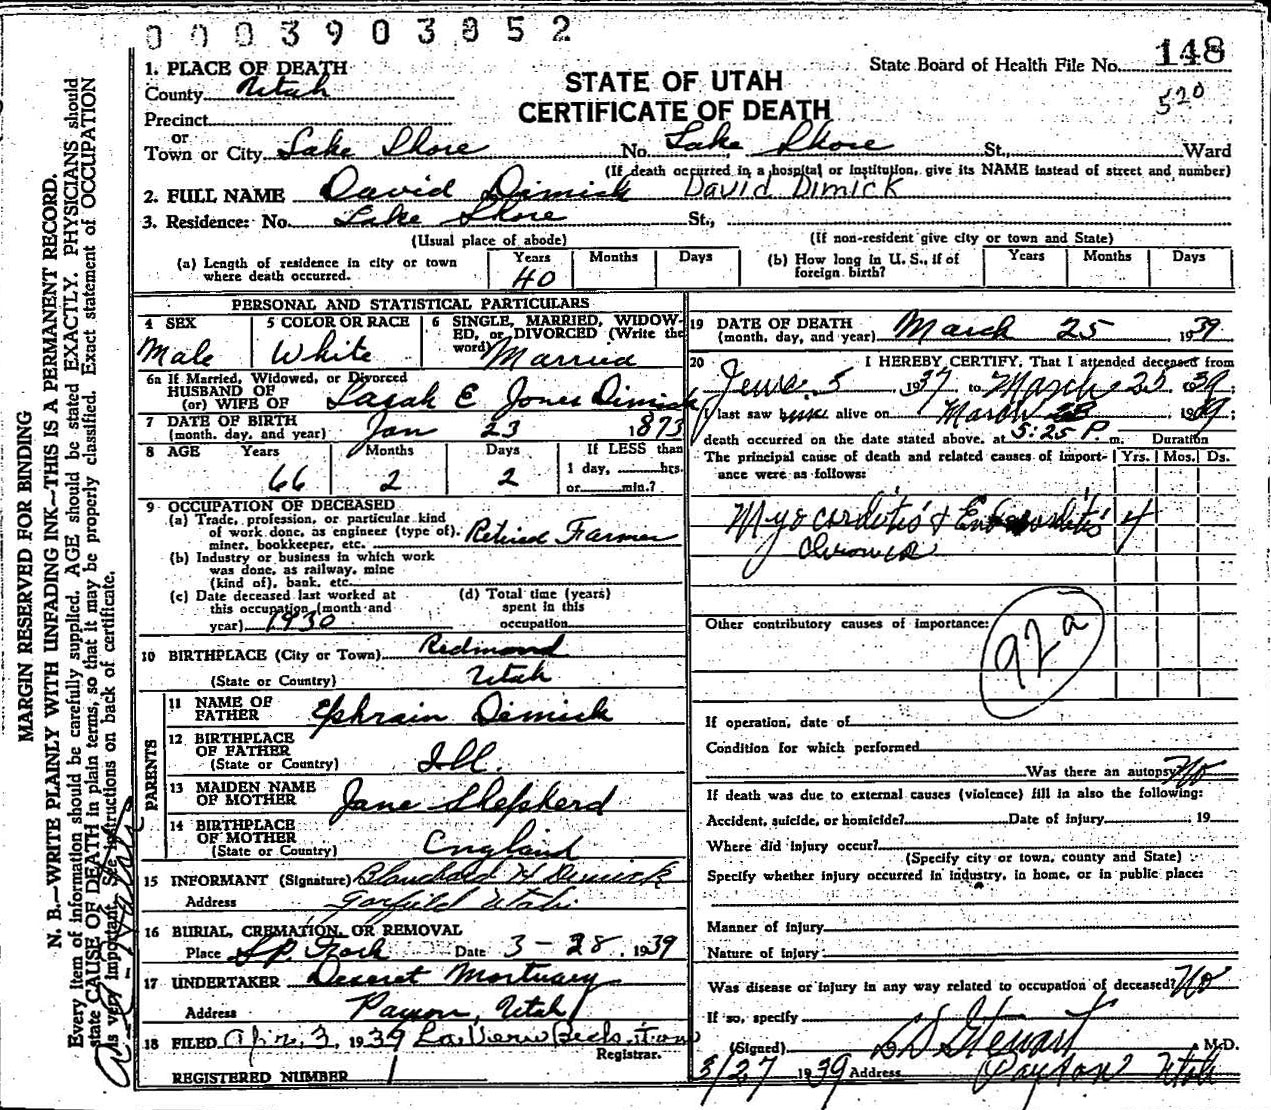 0003903852
148
520
State Board of Health File No.
STATE OF UTAH
CERTIFICATE OF DEATH
1. PLACE OF DEATH
County Utah
Precinct
or
Town or City Lake Shore No. Lake Shore St., Ward
(If death occurred in a hospital or institution, give its NAME instead of street and number)
2. FULL NAME David Dimick David Dimick
3. Residence: No. Lake Shore St.,
(Usual place of abode) (If non-resident give city or town and State)
(a) Length of residence in city or town where death occurred. Years 40 Months Days
(b) How long in U. S., if of foreign birth? Years Months Days
PERSONAL AND STATISTICAL PARTICULARS
4 SEX Male
5 COLOR OR RACE White
6 SINGLE, MARRIED, WIDOWED, or DIVORCED (Write the word) Married
6a If Married, Widowed, or Divorced
HUSBAND OF
(or) WIFE OF Sarah E Jones Dimick
7 DATE OF BIRTH
(month, day, and year) Jan 23 1873
8 AGE Years 66 Months 2 Days 2
If LESS than
1 day, hrs.
or min.?
9 OCCUPATION OF DECEASED
(a) Trade, profession, or particular kind
of work done, as engineer (type of). Retired Farmer
miner, bookkeeper, etc.
(b) Industry or business in which work
was done, as railway, mine
(kind of), bank, etc.
(c) Date deceased last worked at
this occupation (month and
year) 1930
(d) Total time (years)
spent in this
occupation
10 BIRTHPLACE (City or Town) Redmond
(State or Country) Utah
PARENTS
11 NAME OF
FATHER Ephrain Dimick
12 BIRTHPLACE
OF FATHER
(State or Country) Ill.
13 MAIDEN NAME
OF MOTHER Jane Shepherd
14 BIRTHPLACE
OF MOTHER
(State or Country) England
15 INFORMANT (Signature) Blanchard H Dimick
Address Garfield Utah
16 BURIAL, CREMATION, OR REMOVAL
Place Sp. Fork Date 3-28, 1939
17 UNDERTAKER Deseret Mortuary
Address Payson, Utah
18 FILED Apr. 3, 1939 LaVern
Registrar.
REGISTERED NUMBER 1
19 DATE OF DEATH
(month, day, and year) March 25 1939
20 I HEREBY CERTIFY, That I attended deceased from
June 5 1937 to March 25 1939;
I last saw him alive on March 25 1939;
death occurred on the date stated above, at 5:25 P. m. Duration
The principal cause of death and related causes of importance were as follows: Yrs. Mos. Ds.
Myocarditis & Endocarditis 4
Chronica
Other contributory causes of importance:
92a
If operation, date of
Condition for which performed
Was there an autopsy No
If death was due to external causes (violence) fill in also the following:
Accident, suicide, or homicide? Date of injury 19
Where did injury occur?
(Specify city or town, county and State)
Specify whether injury occurred in industry, in home, or in public place:
Manner of injury
Nature of injury
Was disease or injury in any way related to occupation of deceased? No
If so, specify
(Signed) L D Stewart, M.D.
3/27 1939 Address Payson Utah
MARGIN RESERVED FOR BINDING
N. B.—WRITE PLAINLY WITH UNFADING INK—THIS IS A PERMANENT RECORD.
Every item of information should be carefully supplied. AGE should be stated EXACTLY. PHYSICIANS should
state CAUSE OF DEATH in plain terms, so that it may be properly classified. Exact statement of OCCUPATION
is very important. See instructions on back of certificate.